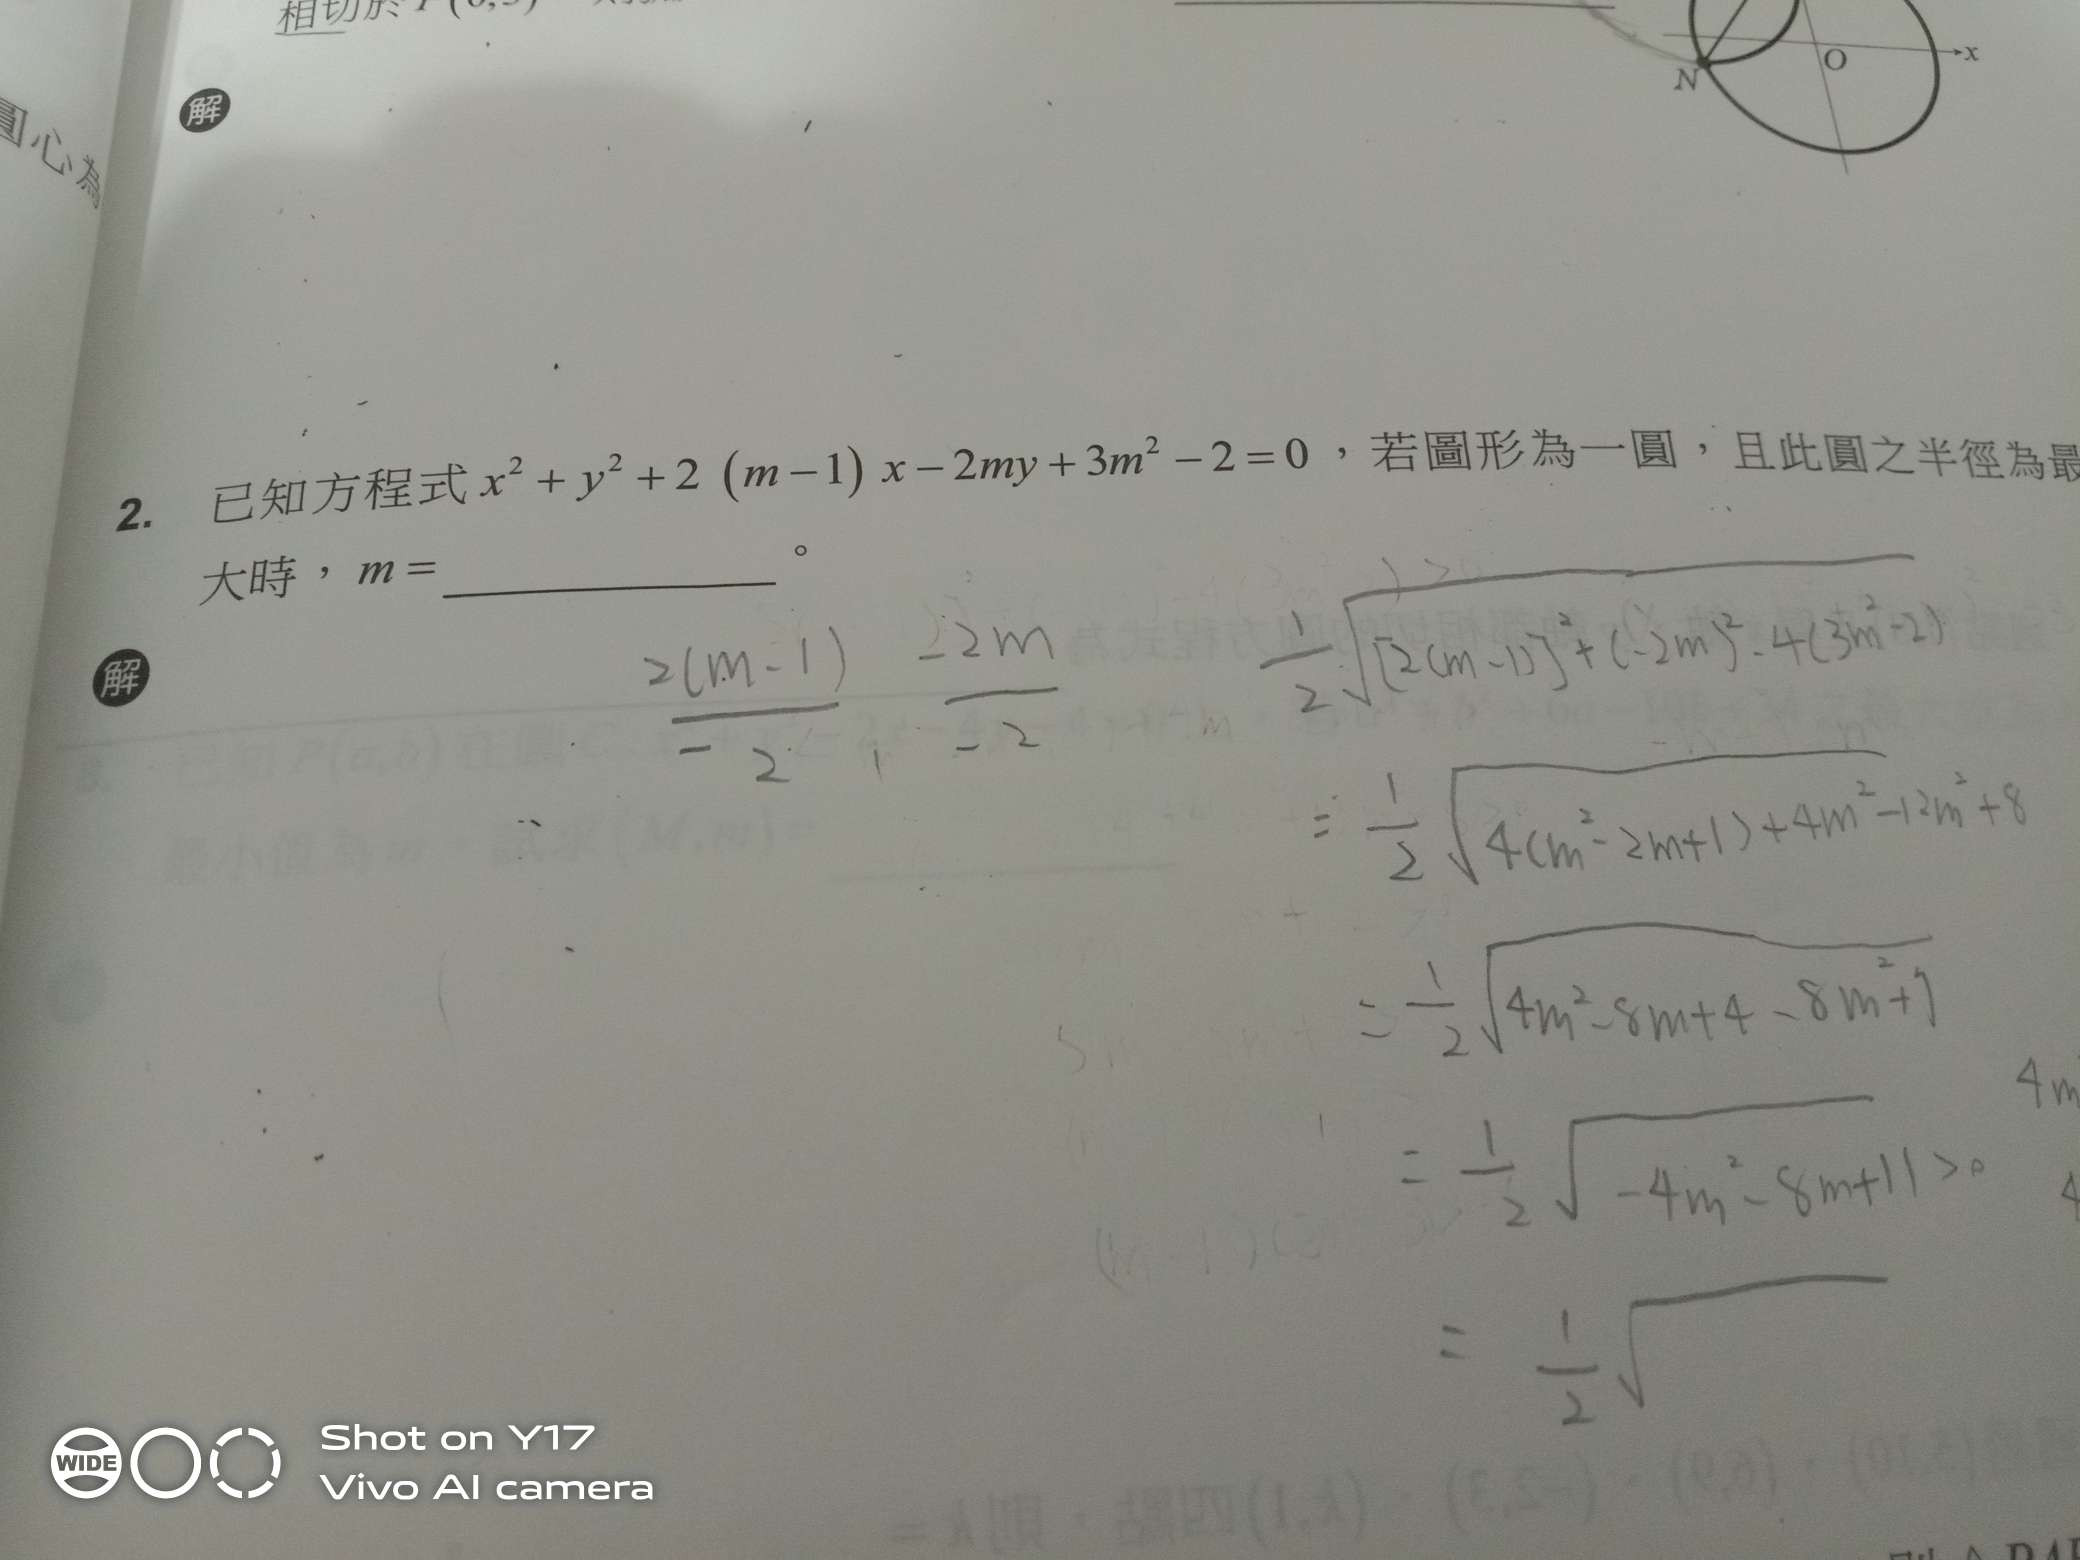 相切於
解
圓心為
N
O
x
2. 已知方程式 x² + y² + 2 (m − 1) x − 2my + 3m² − 2 = 0，若圖形為一圓，且此圓之半徑為最
大時，m = ________。
解
2(m-1)/-2 , -2m/-2
1/2 √[2(m-1)]²+(-2m)²-4(3m²-2)
= 1/2 √4(m²-2m+1)+4m²-12m²+8
= 1/2 √4m²-8m+4-8m²+7
= 1/2 √-4m²-8m+11 >0
= 1/2 √
4m
4
WIDE
Shot on Y17
Vivo AI camera